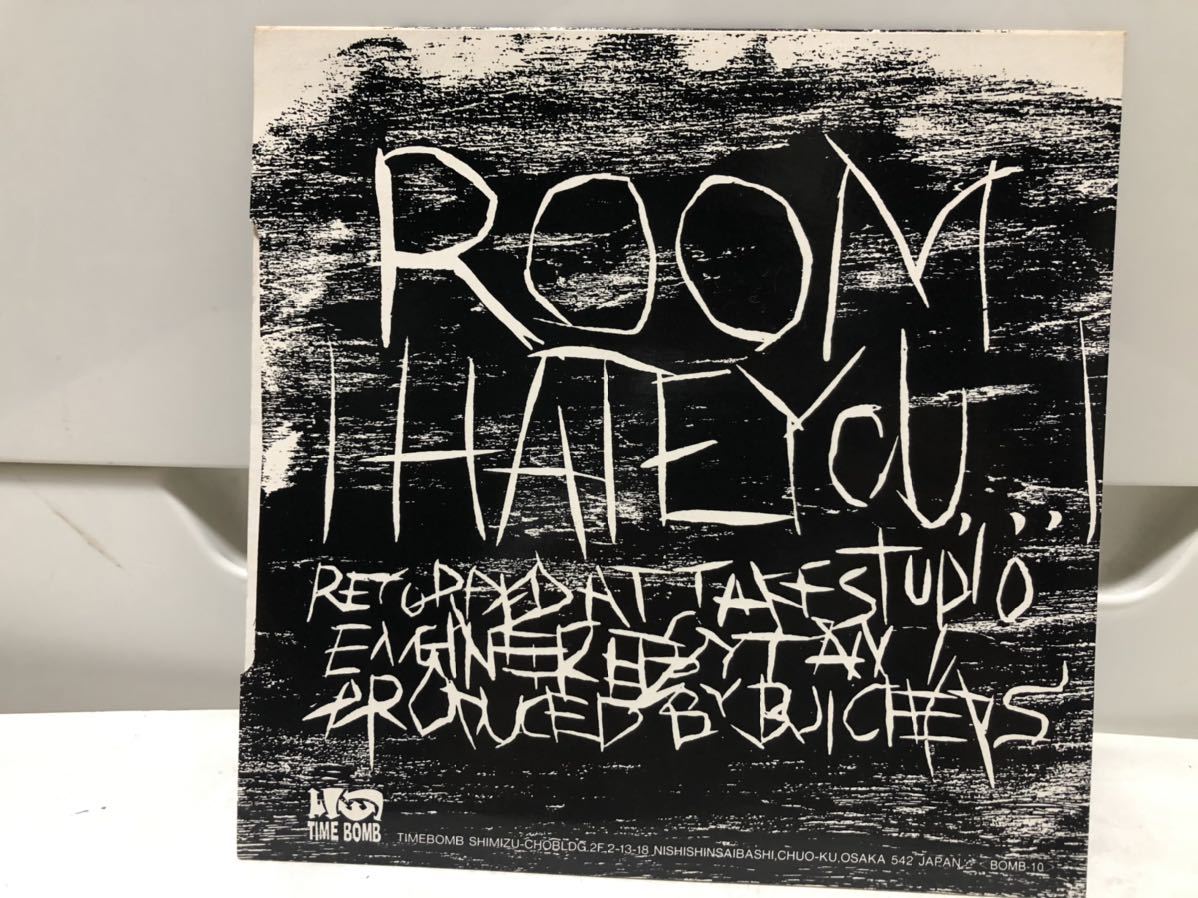 ROOM
I HATE YOU....!
RECORDED AT TAKE STUDIO
ENGINEERED BY TANI
PRODUCED BY BUTCHERS
TIME BOMB
TIMEBOMB SHIMIZU-CHOBLDG.2F.2-13-18 NISHISHINSAIBASHI,CHUO-KU,OSAKA 542 JAPAN
BOMB-10